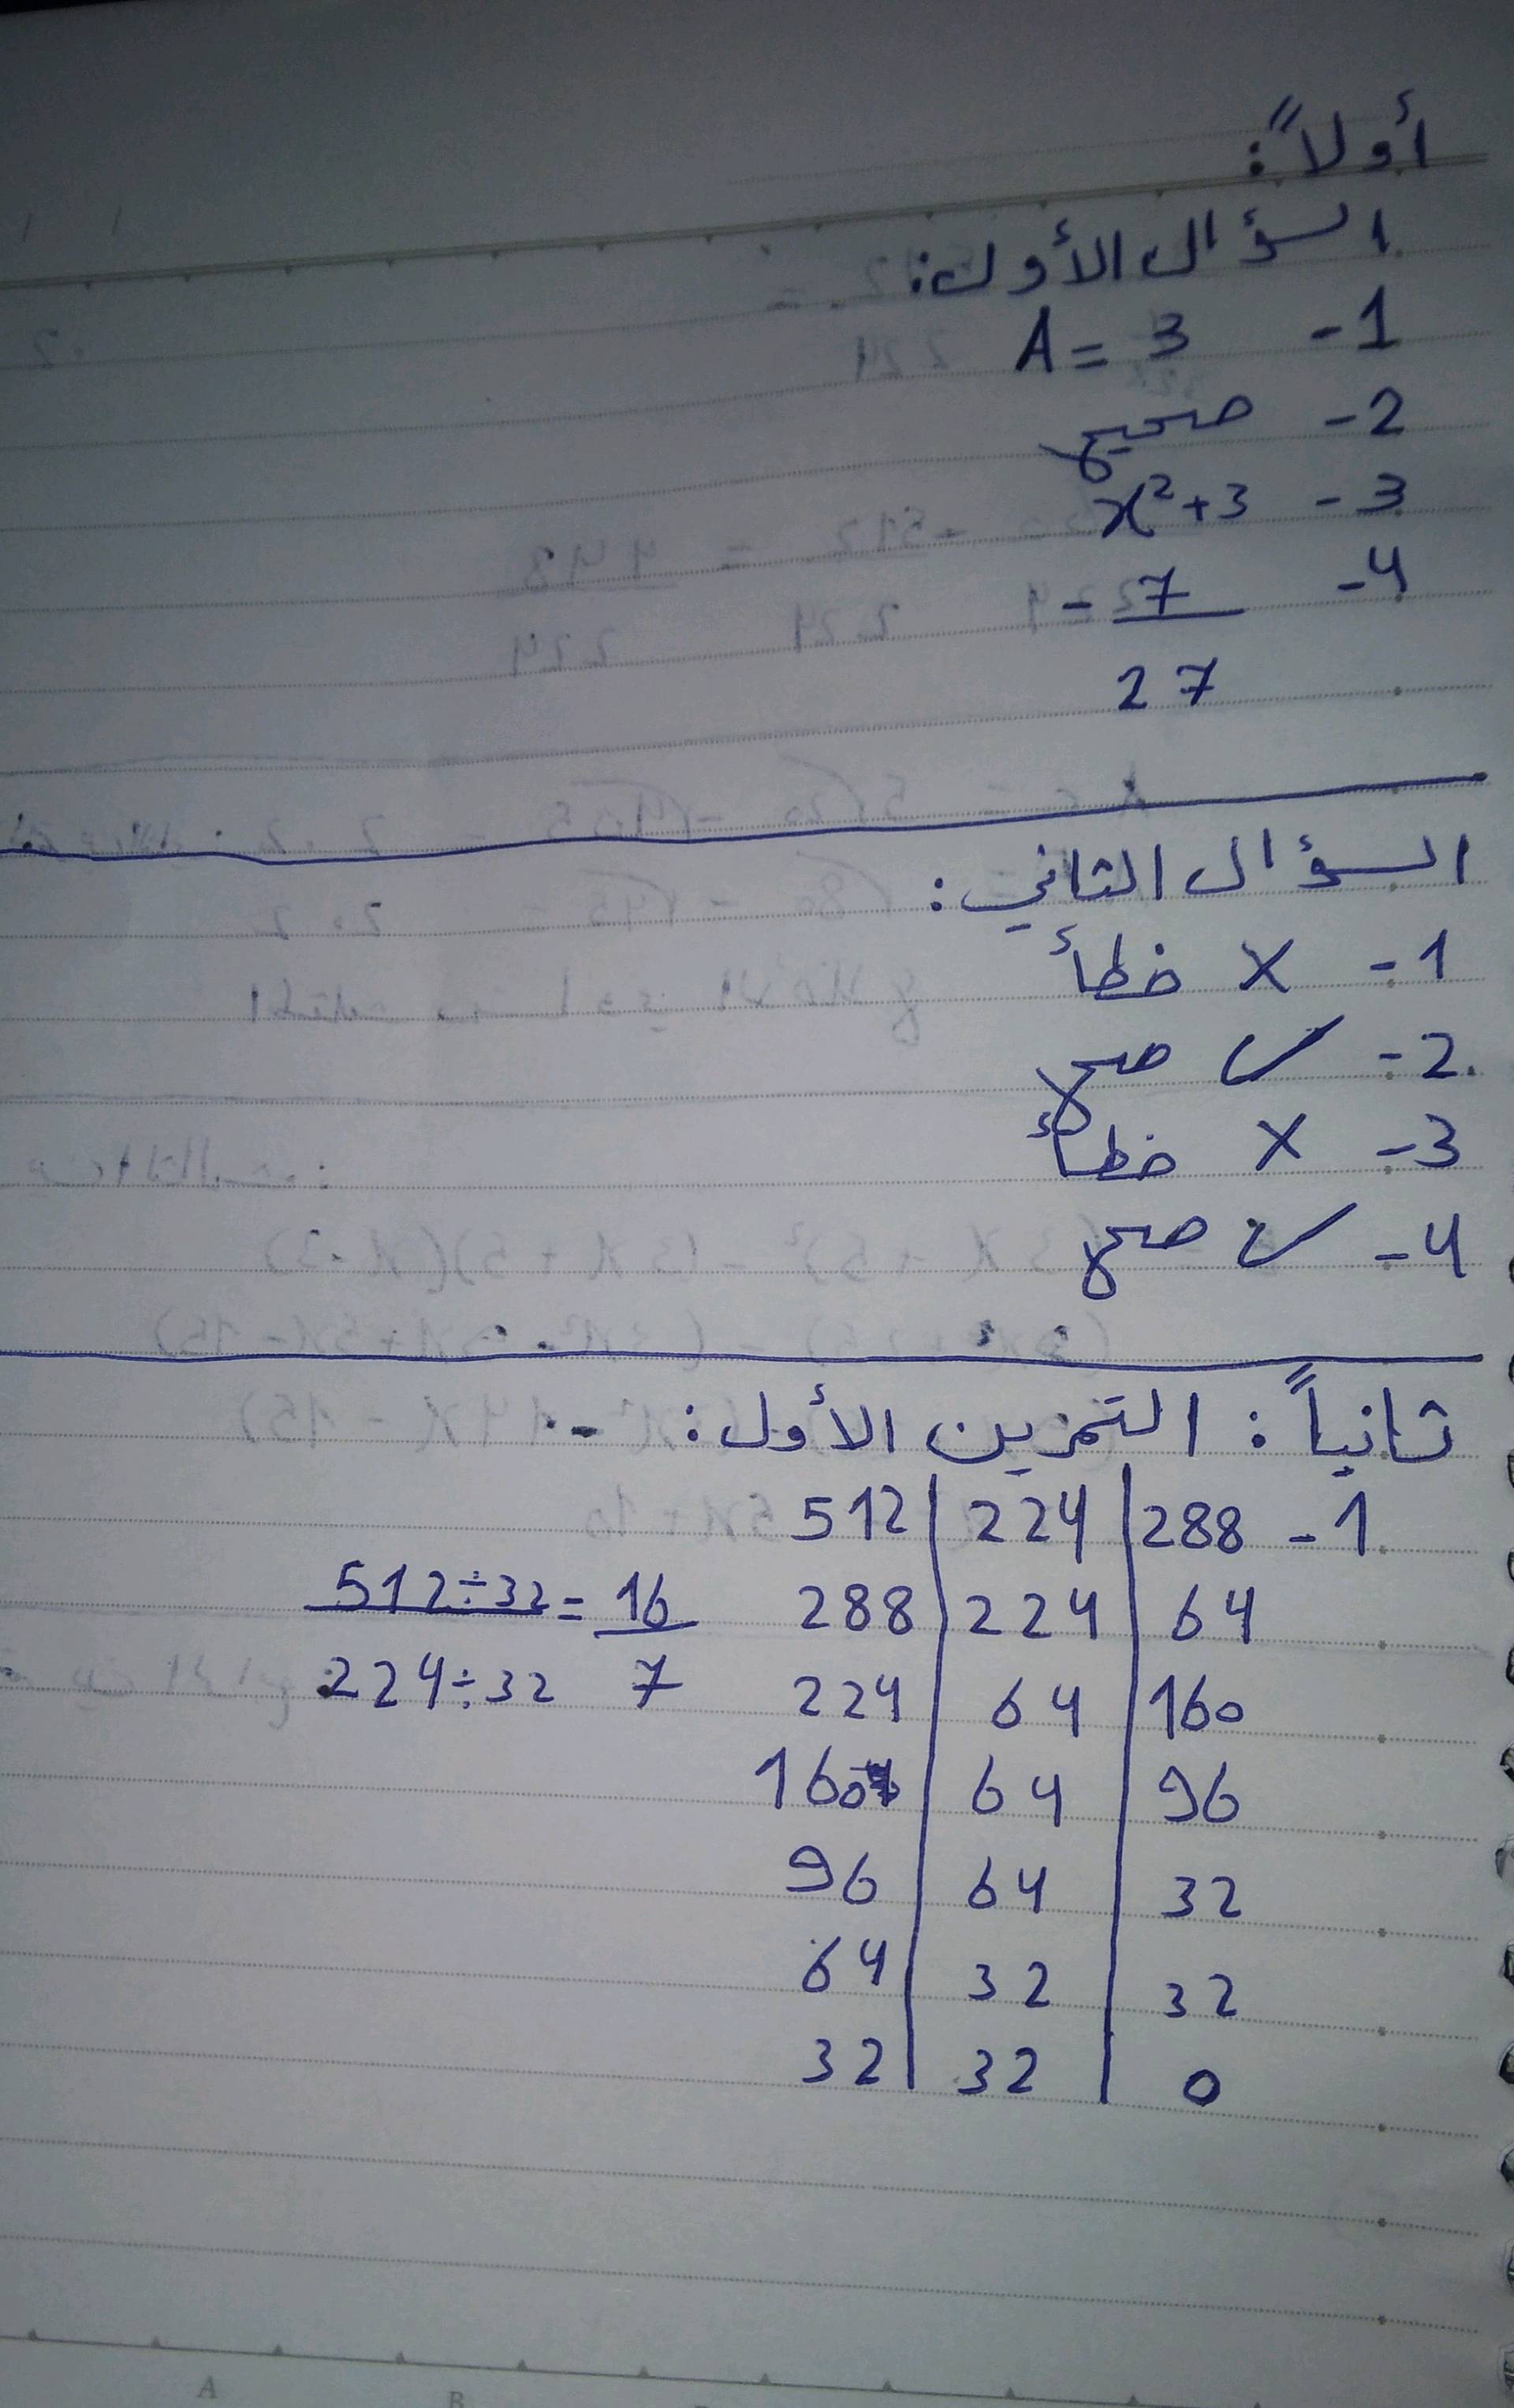 أولاً:
السؤال الأول:
1- A = 3
2- صحيح
3- x²+3
4- - 7
27
السؤال الثاني:
1- X خطأ
2- ✓ صح
3- X خطأ
4- ✓ صح
ثانياً: التمرين الأول:
1- 512 | 224 | 288
288 | 224 | 64
512÷32 = 16
224÷32 7
224 | 64 | 160
160 | 64 | 96
96 | 64 | 32
64 | 32 | 32
32 | 32 | 0
A
B